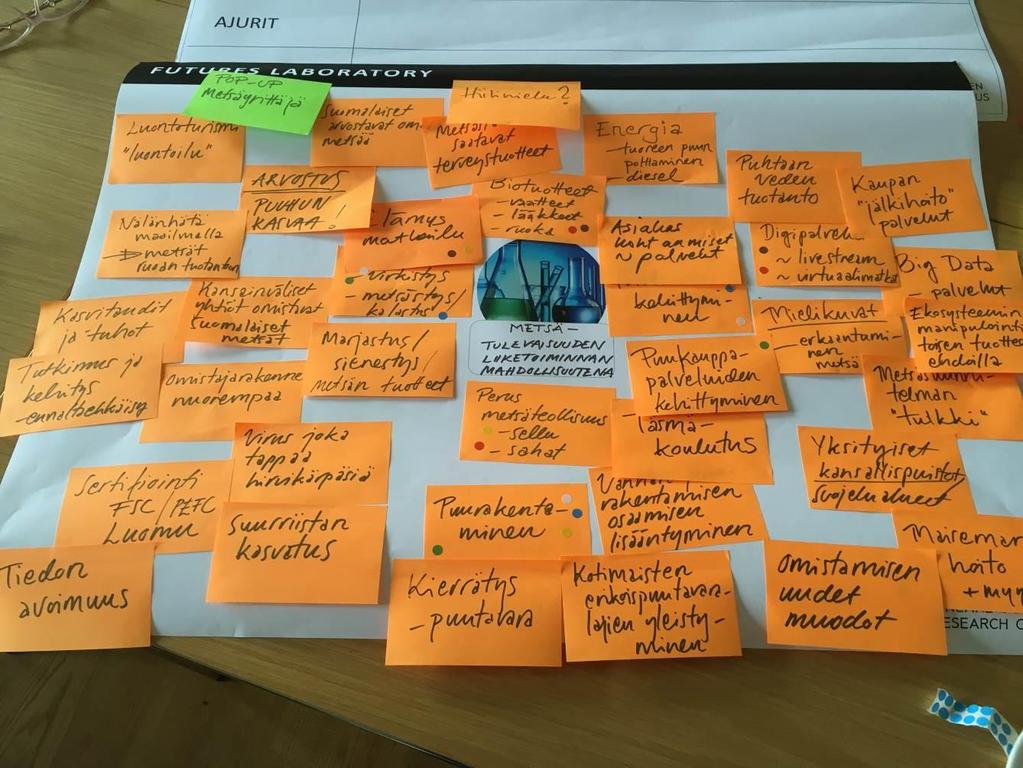 AJURIT
FUTURES LABORATORY
POP-UP
metsäyrittäjä
Luontoturismi
"luontoilu"
Suomalaiset
arvostavat
metsää
Hiilinielu?
saatavat
terveystuotteet
Energia
- tuoreen puun
polttaminen
- diesel
Puhtaan
veden
tuotanto
Kaupan
"jälkihoito"
palvelut
ARVOSTUS
PUUHUN
KASVAA!
Elämys
matkailu
Biotuotteet
- vaatteet
- lääkkeet
- ruoka
Asiakas
kohtaamiset
~ palvelut
Digipalvelu
~ livestream
~ virtuaalimatka
Big Data
- palvelut
Nälänhätä
maailmalla
metsät
ruuan tuotantoon
Virkistys
- metsästys/
kalastus
kehittymi-
nen
Kansainväliset
yhtiöt omistavat
Suomalaiset
metsät
Kasvitaudit
ja tuhot
Marjastus/
sienestys/
metsän tuotteet
METSÄ -
TULEVAISUUDEN
LIIKETOIMINNAN
MAHDOLLISUUTENA
Mielikuvat
- erkaantumi-
nen
metsä
Ekosysteemin
manipulointi
toisen tuotteen
ehdoilla
Tutkimus ja
kehitys
ennaltaehkäisy
Omistajarakenne
nuorempaa
Puukauppa-
palveluiden
kehittyminen
telman
"tulkki"
Perus
metsäteollisuus
- sellu
- sahat
Täsmä-
koulutus
Virus joka
tappaa
hirvikärpäsiä
Yksityiset
kansallispuistot/
suojelualueet
Sertifiointi
FSC/PEFC
Luomu
Suurriistan
kasvatus
Puurakenta-
minen
rakentamisen
osaamisen
lisääntyminen
Maiseman
hoito
Tiedon
avoimuus
Kierrätys
- puutavara
Kotimaisten
erikoispuutavara-
lajien yleisty-
minen
Omistamisen
uudet
muodot